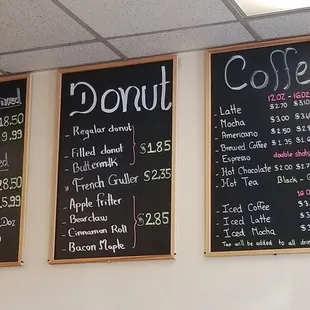 18.50
9.99
28.50
5.99
Doz
Donut
Regular donut
Filled donut
Buttermilk
$1.85
French Gruller $2.35
Apple Fritter
Bearclaw
Cinnamon Roll
Bacon Maple
$2.85
Coffe
12 oz - 16 oz
Latte $2.70
Mocha $3.00
Americano $2.50
Brewed Coffee $1.35
Espresso double shots
Hot Chocolate $2.00
Hot Tea Black - G
Iced Coffee
Iced Latte
Iced Mocha
Tax will be added to all